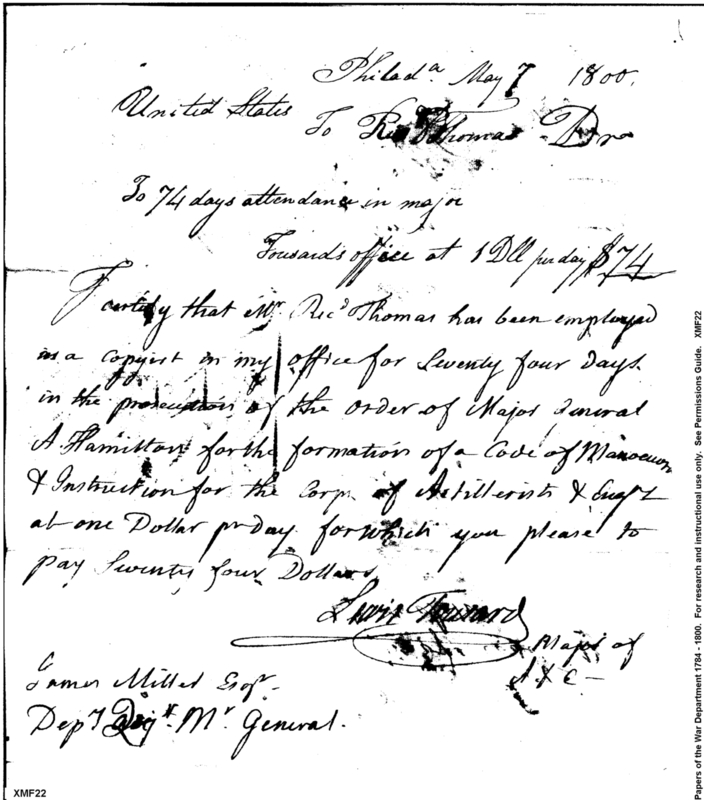 Philada May 7 1800.
United States
To Ricd Thomas Dr
To 74 days attendance in major
Tousards office at 1 Dll per day $74
I certify that Mr. Ricd Thomas has been employed
as a copyist in my office for Seventy four Days
in the prosecution of the order of Major General
A Hamilton for the formation of a Code of Manoeuvres
& Instruction for the Corps of Artillerists & Engrs
at one Dollar pr day for which you please to
pay Seventy four Dollars
Lewis Tousard
Major of
A & E
James Miller Esqr.
Depy Qr. Mr. General.
XMF22
Papers of the War Department 1784 - 1800. For research and instructional use only. See Permissions Guide. XMF22